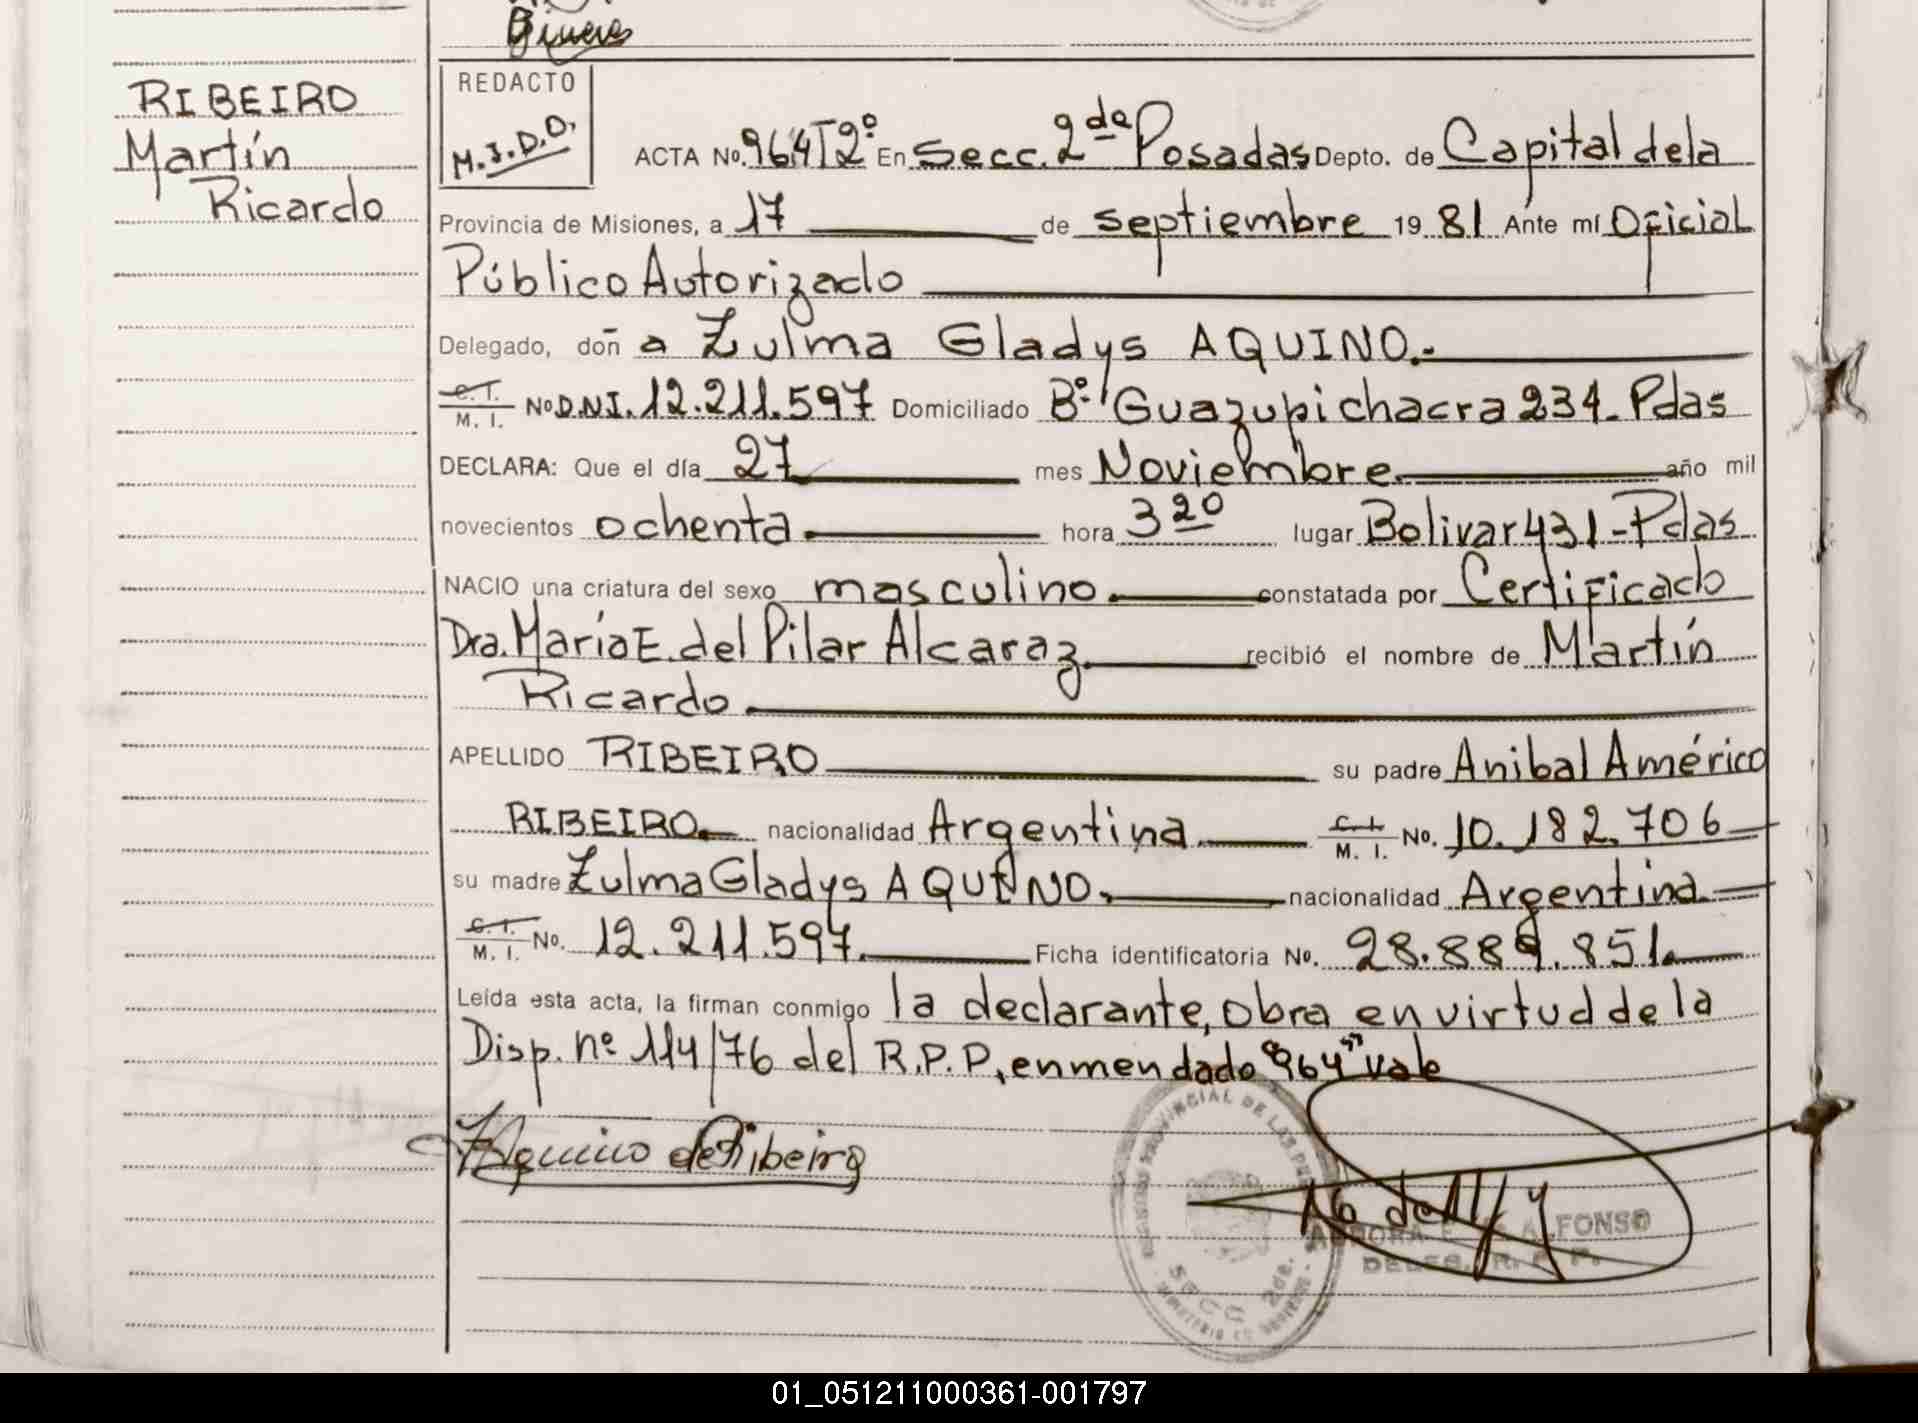 RIBEIRO
Martín
Ricardo
REDACTO
M.J.D.O.
ACTA No. 964 T2º En Secc. 2da Posadas Depto. de Capital dela
Provincia de Misiones, a 17 de septiembre 19 81 Ante mí Oficial
Público Autorizado
Delegado, doñ a Zulma Gladys AQUINO.-
C.I. M. I. No D.N.I. 12.211.597 Domiciliado Bº Guazupichacra 234-Pdas
DECLARA: Que el día 27 mes Noviembre. año mil
novecientos ochenta hora 3 20 lugar Bolivar 431-Pdas
NACIO una criatura del sexo masculino. constatada por Certificado
Dra. María E. del Pilar Alcaraz recibió el nombre de Martín
Ricardo
APELLIDO RIBEIRO su padre Anibal Américo
RIBEIRO. nacionalidad Argentina C.I. M. I. No. 10.182.706
su madre Zulma Gladys AQUINO. nacionalidad Argentina.
C.I. M. I. No. 12.211.597. Ficha identificatoria No. 28.889.851.
Leída esta acta, la firman conmigo la declarante, obra en virtud de la
Disp. nº 114/76 del R.P.P, enmendado "964" vale
ZAquino de Ribeiro
PROVINCIAL DE LAS
SECC 2da.
ALFONSO
01_051211000361-001797